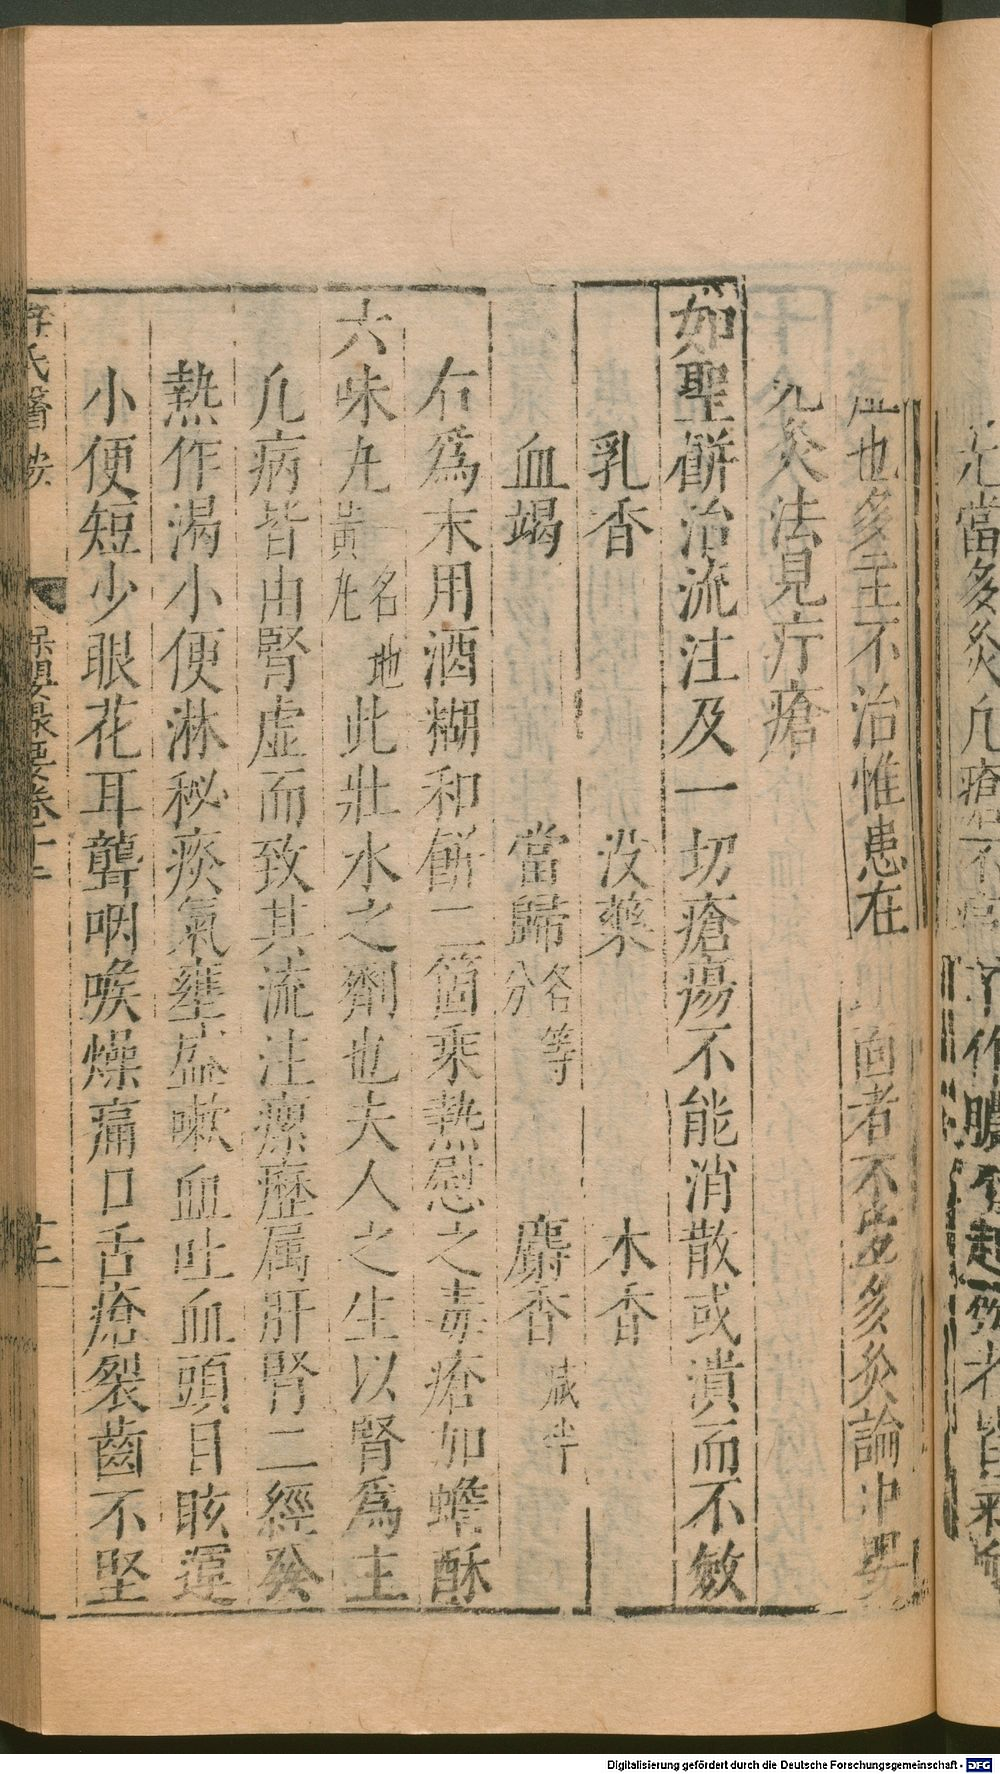 也多主不治惟患在面者不宜多灸論中畧
灸法見疔瘡
如聖餅治流注及一切瘡瘍不能消散或潰而不斂
乳香 没藥 木香
血竭 當歸各等分 麝香减半
右爲末用酒糊和餅二箇乘熱慰之毒瘡加蟾酥
六味丸一名地黃丸此壯水之劑也夫人之生以腎爲主
凢病皆由腎虚而致其流注瘰癧属肝腎二經發
熱作渴小便淋秘痰氣壅盛嗽血吐血頭目眩運
小便短少眼花耳聾咽喉燥痛口舌瘡裂齒不堅
氏醫按
Digitalisierung gefördert durch die Deutsche Forschungsgemeinschaft - DFG